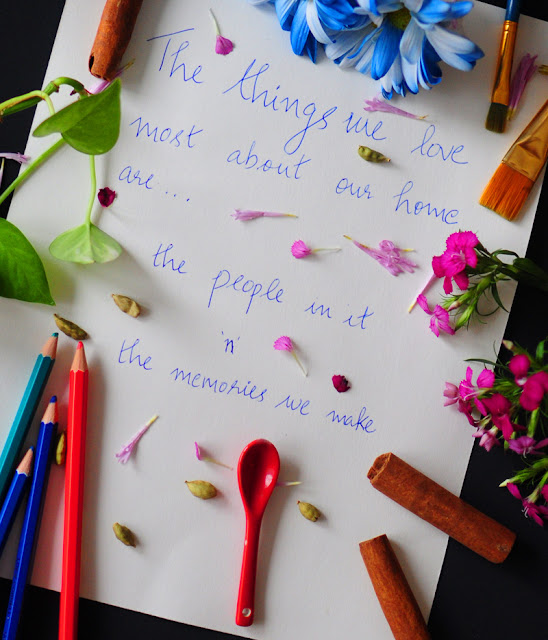 The things we love
most about our home
are...
the people in it
'n'
the memories we make